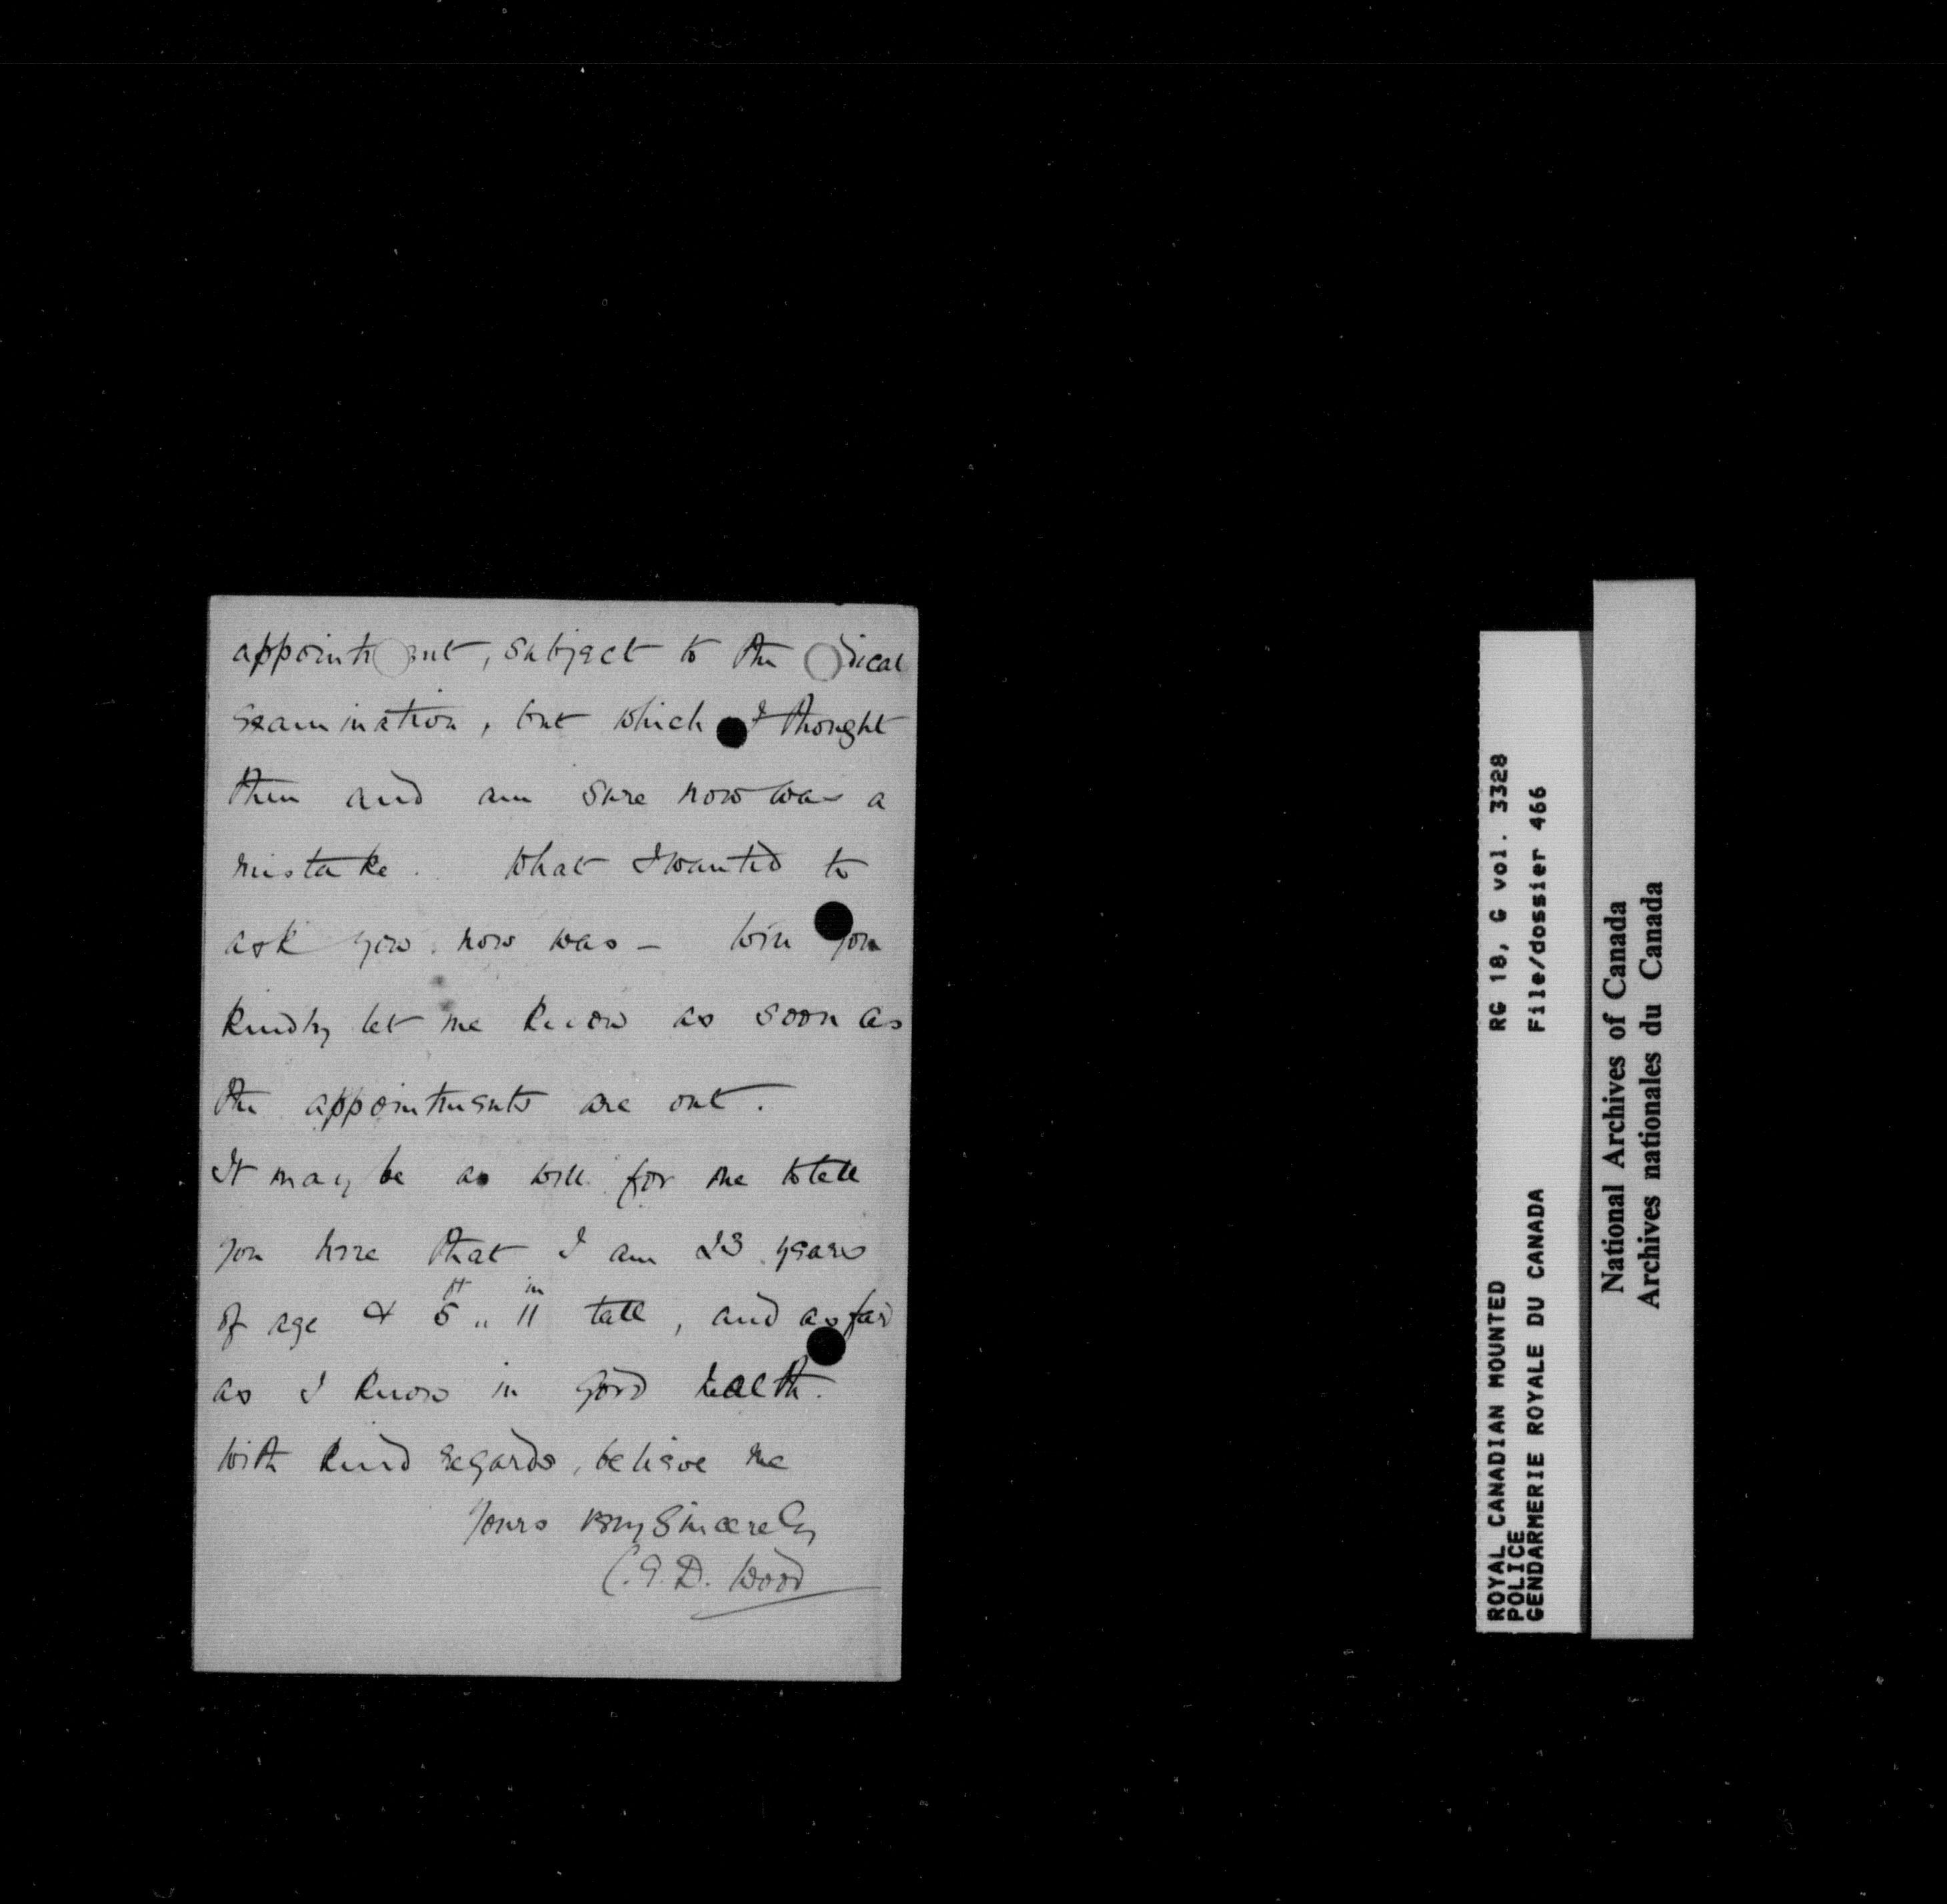 appointment, subject to the medical
examination, but which I thought
then and am sure now was a
mistake. What I wanted to
ask you now was – Will you
kindly let me know as soon as
the appointments are out.
It may be as well for me to tell
you here that I am 23 years
of age & 5 ft „ 11 in tall, and as far
as I know in good health.
With kind regards, believe me
Yours very Sincerely
C.E.D. Wood
ROYAL CANADIAN MOUNTED RG 18, G vol. 3328
POLICE
GENDARMERIE ROYALE DU CANADA File/dossier 466
National Archives of Canada
Archives nationales du Canada